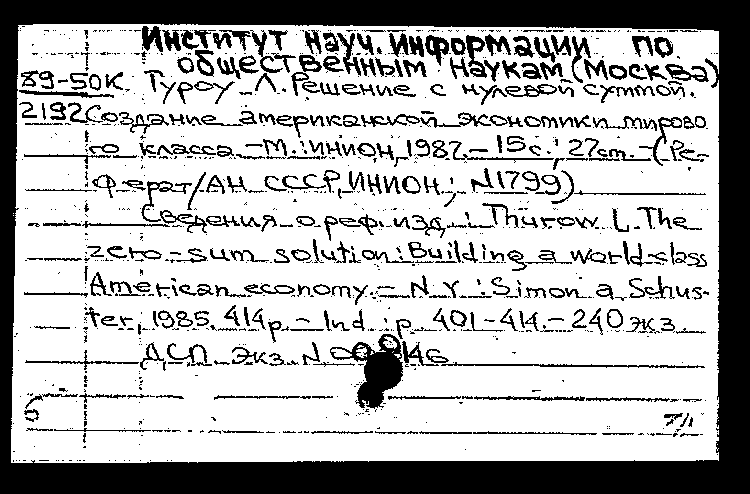 Институт науч. информации по
общественным наукам (Москва)
89-50К. Туроу Л. Решение с нулевой суммой.
2192 Создание американской экономики мирово
го класса. - М.: ИНИОН, 1987. - 15 с.; 27 cm. - (Ре-
ферат/АН СССР, ИНИОН; N1799).
Сведения о реф. изд.: Thurow L. The
zero-sum solution: Building a world-class
American economy. - N. Y.: Simon a. Schus-
ter, 1985. 414 p. - Ind.: p. 401-414. - 240 экз.
ДСП. Экз. N 146